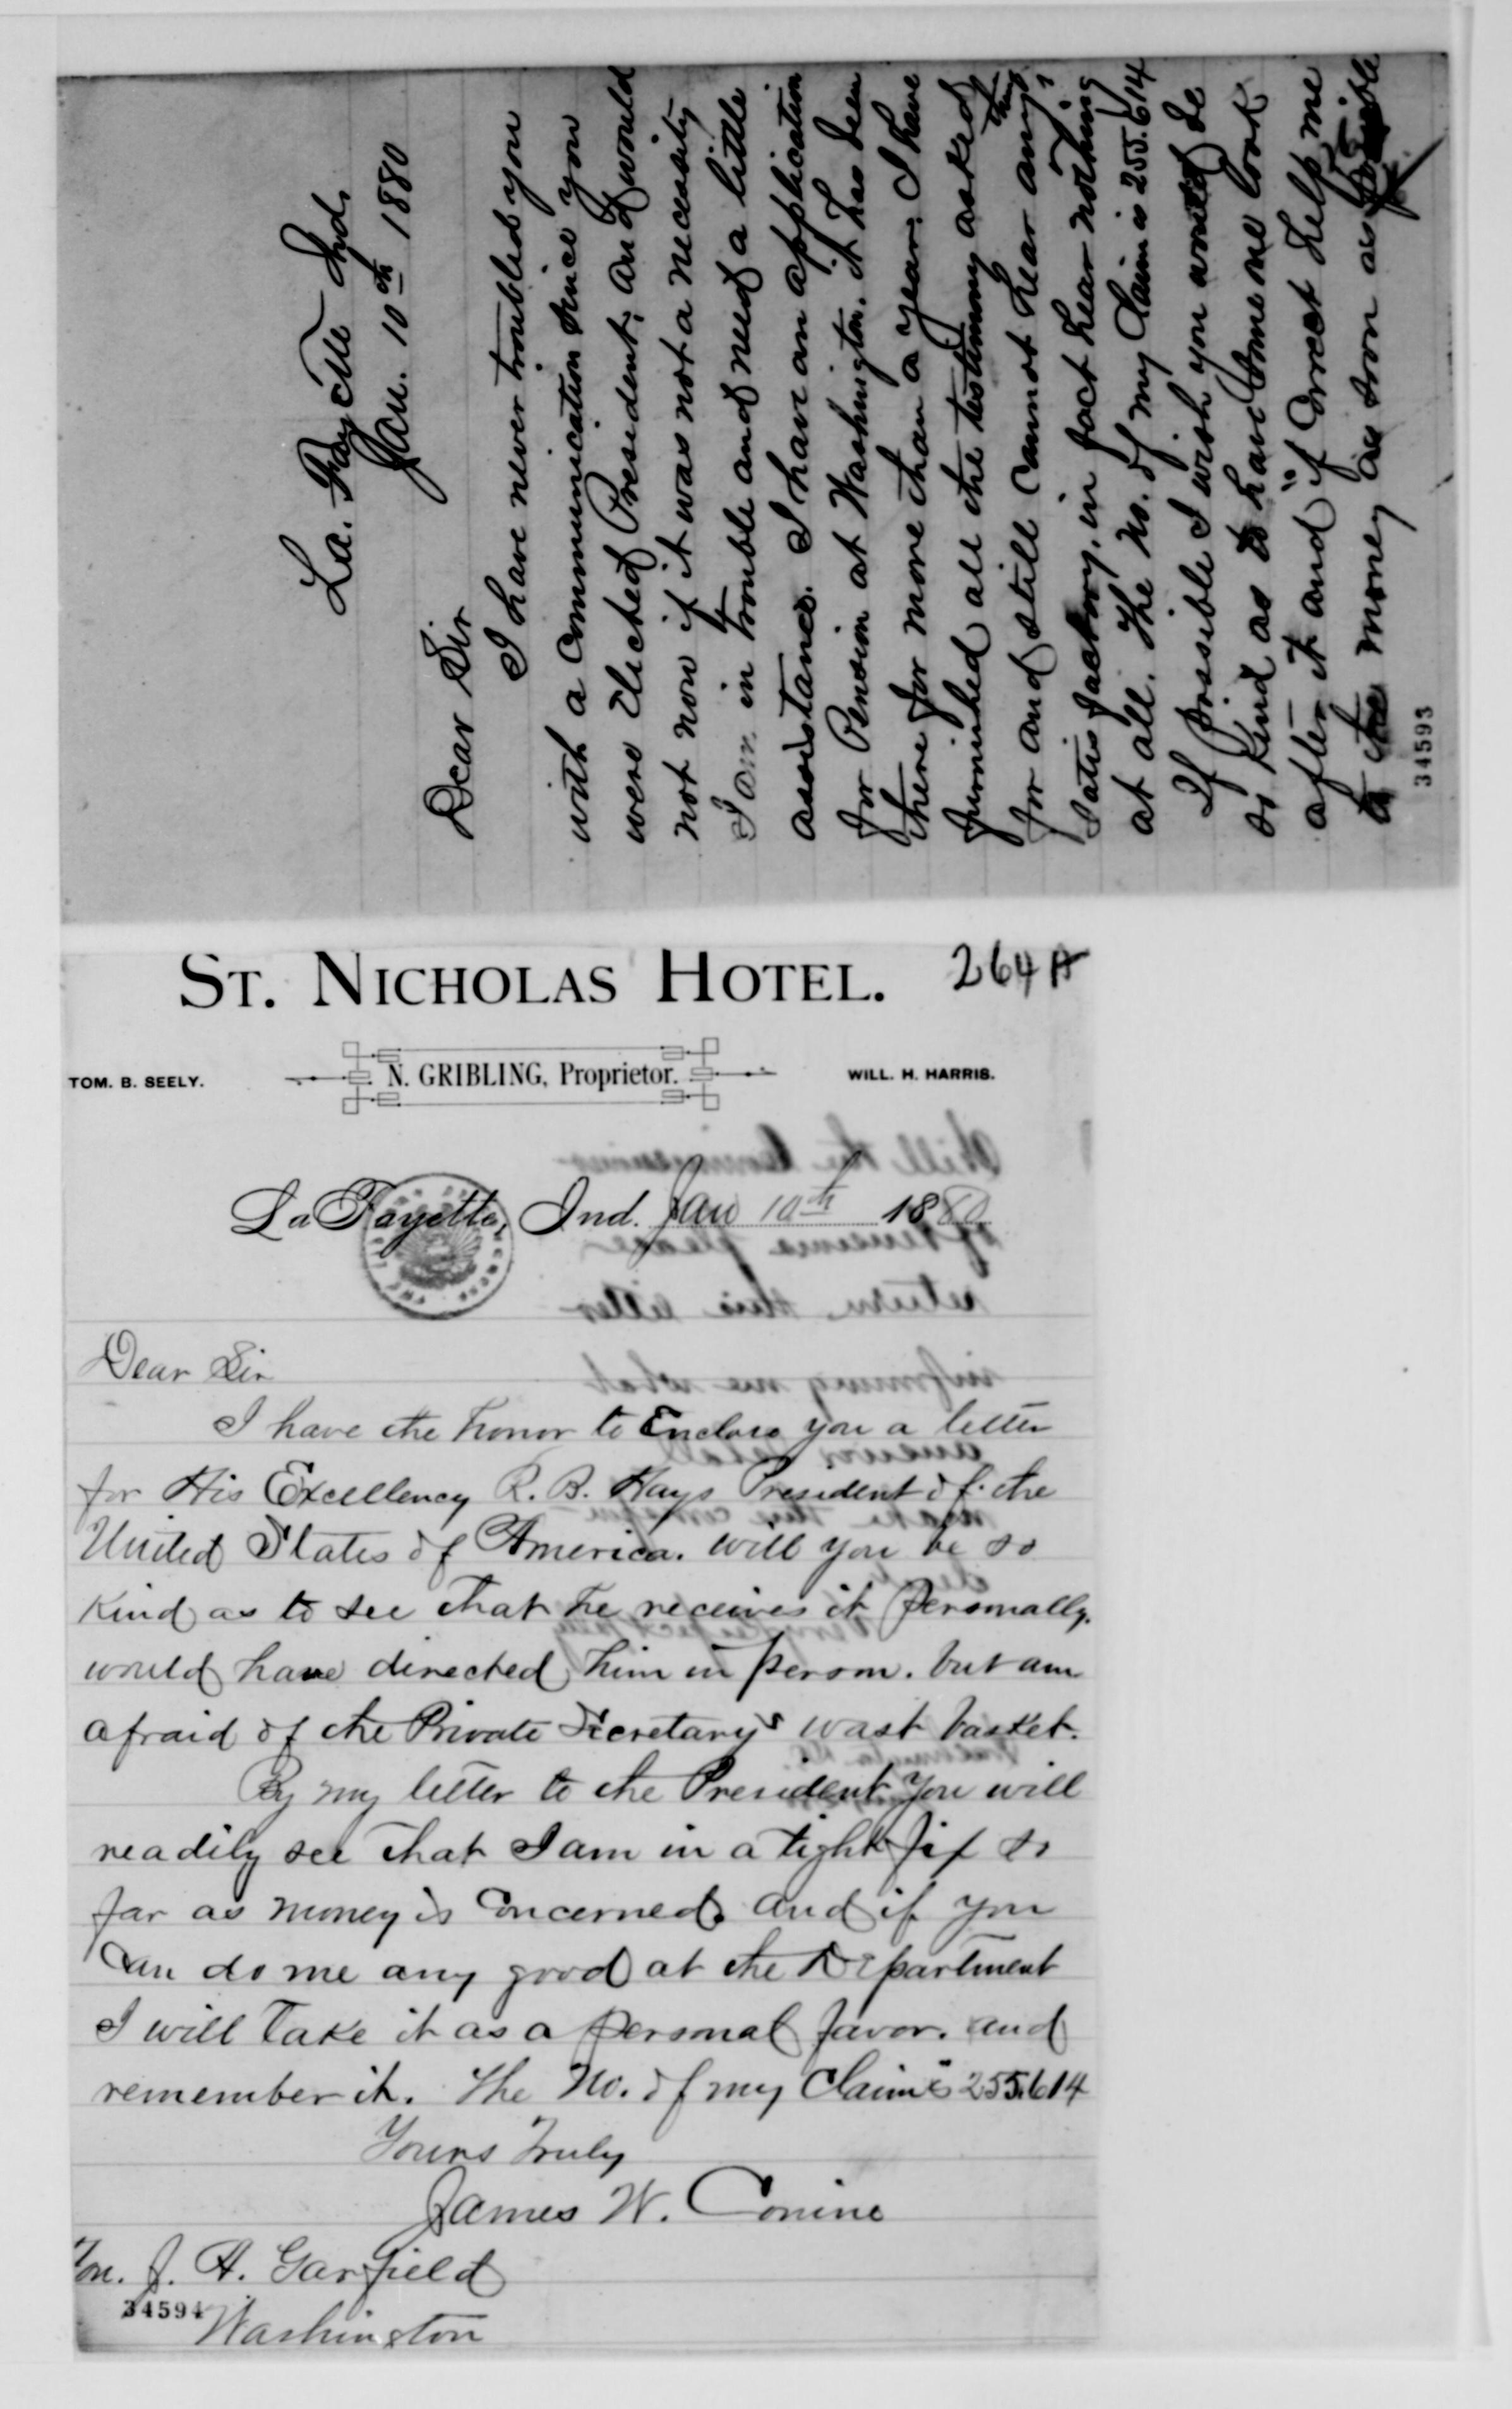 La. Fayette Ind.
Jan. 10th 1880
Dear Sir
I have never troubled you
with a communication since you
were Elected President, and would
not now if it was not a necessity
I am in trouble and need a little
assistance. I have an application
for Pension at Washington. it has been
there for more than a year. I have
furnished all the testimony asked
for and still cannot hear anything
satisfactory, in fact hear nothing
at all. The No. of my Claim is 255.614
If possible I wish you would be
so kind as to have some one look
after it and if correct help me
to the money as soon as possible
34593
ST. NICHOLAS HOTEL.
264 A
TOM. B. SEELY.
N. GRIBLING, Proprietor.
WILL. H. HARRIS.
La Fayette, Ind. Jan 10th 1880
Dear Sir
I have the honor to Enclose you a letter
for His Excellency R. B. Hays President of the
United States of America. will you be so
kind as to see that he receives it personally.
would have directed him in person. but am
afraid of the Private Secretary's wast basket.
By my letter to the President you will
readily see that I am in a tight fix so
far as money is concerned. and if you
can do me any good at the Department
I will take it as a personal favor. and
remember it. The No. of my Claim is 255.614
Yours Truly
James W. Conine
Hon. J. A. Garfield
34594
Washington